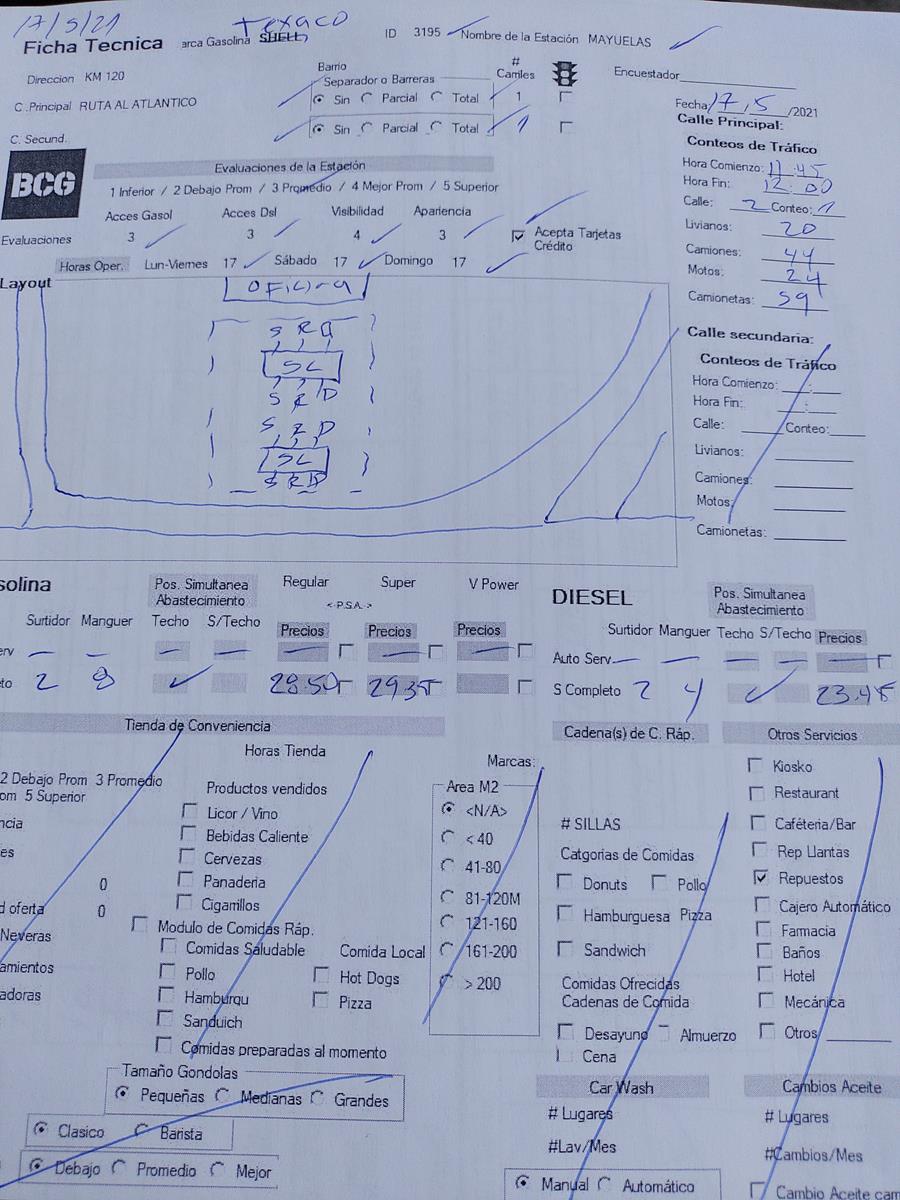 17/5/21
Texaco
Ficha Tecnica arca Gasolina SHELL ID 3195 Nombre de la Estación MAYUELAS
Direccion KM 120
Barrio
Separador o Barreras
# Carriles
Encuestador
C .Principal RUTA AL ATLANTICO
Sin Parcial Total 1
C. Secund.
Sin Parcial Total 1
Fecha 17, 5 /2021
Calle Principal:
Conteos de Tráfico
Hora Comienzo: 11:45
Hora Fin: 12:00
Calle: 2 Conteo: 1
Livianos: 20
Camiones: 44
Motos: 24
Camionetas: 59
BCG
Evaluaciones de la Estación
1 Inferior / 2 Debajo Prom / 3 Promedio / 4 Mejor Prom / 5 Superior
Acces Gasol Acces Dsl Visibilidad Apariencia
Evaluaciones 3 3 4 3
Acepta Tarjetas
Crédito
Horas Oper. Lun-Viernes 17 Sábado 17 Domingo 17
Layout
Oficina
S R D
SC
S R D
S R D
SC
S R D
Calle secundaria:
Conteos de Tráfico
Hora Comienzo: :
Hora Fin: :
Calle: Conteo:
Livianos:
Camiones:
Motos:
Camionetas:
solina
Pos. Simultanea
Abastecimiento
Regular Super V Power
<-P.S.A.->
Surtidor Manguer Techo S/Techo Precios Precios Precios
erv — — — — — — —
to 2 8 28.50 29.35
DIESEL
Pos. Simultanea
Abastecimiento
Surtidor Manguer Techo S/Techo Precios
Auto Serv — — — — —
S Completo 2 4 23.45
Tienda de Conveniencia
Horas Tienda
2 Debajo Prom 3 Promedio
om 5 Superior
ncia
es
0
d oferta 0
Neveras
amientos
adoras
Productos vendidos
Licor / Vino
Bebidas Caliente
Cervezas
Panaderia
Cigarrillos
Modulo de Comidas Ráp.
Comidas Saludable Comida Local
Pollo Hot Dogs
Hamburqu Pizza
Sanduich
Comidas preparadas al momento
Marcas:
Area M2
<N/A>
< 40
41-80
81-120M
121-160
161-200
> 200
Tamaño Gondolas
Pequeñas Medianas Grandes
Clasico Barista
Debajo Promedio Mejor
Cadena(s) de C. Ráp.
# SILLAS
Catgorias de Comidas
Donuts Pollo
Hamburguesa Pizza
Sandwich
Comidas Ofrecidas
Cadenas de Comida
Desayuno Almuerzo
Cena
Car Wash
# Lugares
#Lav/Mes
Manual Automático
Otros Servicios
Kiosko
Restaurant
Caféteria/Bar
Rep Llantas
Repuestos
Cajero Automático
Farmacia
Baños
Hotel
Mecánica
Otros
Cambios Aceite
# Lugares
#Cambios/Mes
Cambio Aceite cam